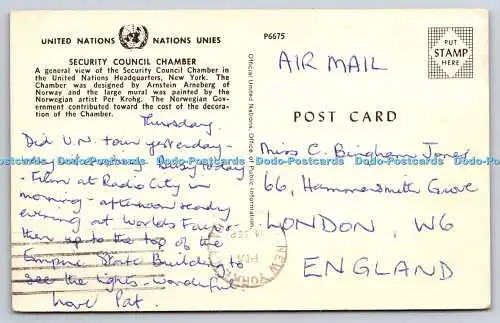 UNITED NATIONS NATIONS UNIES
SECURITY COUNCIL CHAMBER
A general view of the Security Council Chamber in
the United Nations Headquarters, New York. The
Chamber was designed by Arnstein Arneberg of
Norway and the large mural was painted by the
Norwegian artist Per Krohg. The Norwegian Gov-
ernment contributed toward the cost of the decora-
tion of the Chamber.
Thursday.
Did U.N. tour yesterday -
Busy today
- Film at Radio City in
morning - afternoon &
evening at Worlds Fair -
then up to the top of the
Empire State Building to
see the lights - wonderful
Love Pat.
Official United Nations, Office of Public Information
P6675
PUT
STAMP
HERE
AIR MAIL
POST CARD
Miss C. Bingham Jones
66, Hammersmith Grove
LONDON, W6
ENGLAND
NEW YORK
SEP
Dodo-Postcards Dodo-Postcards Dodo-Postcards Dodo-Postcards